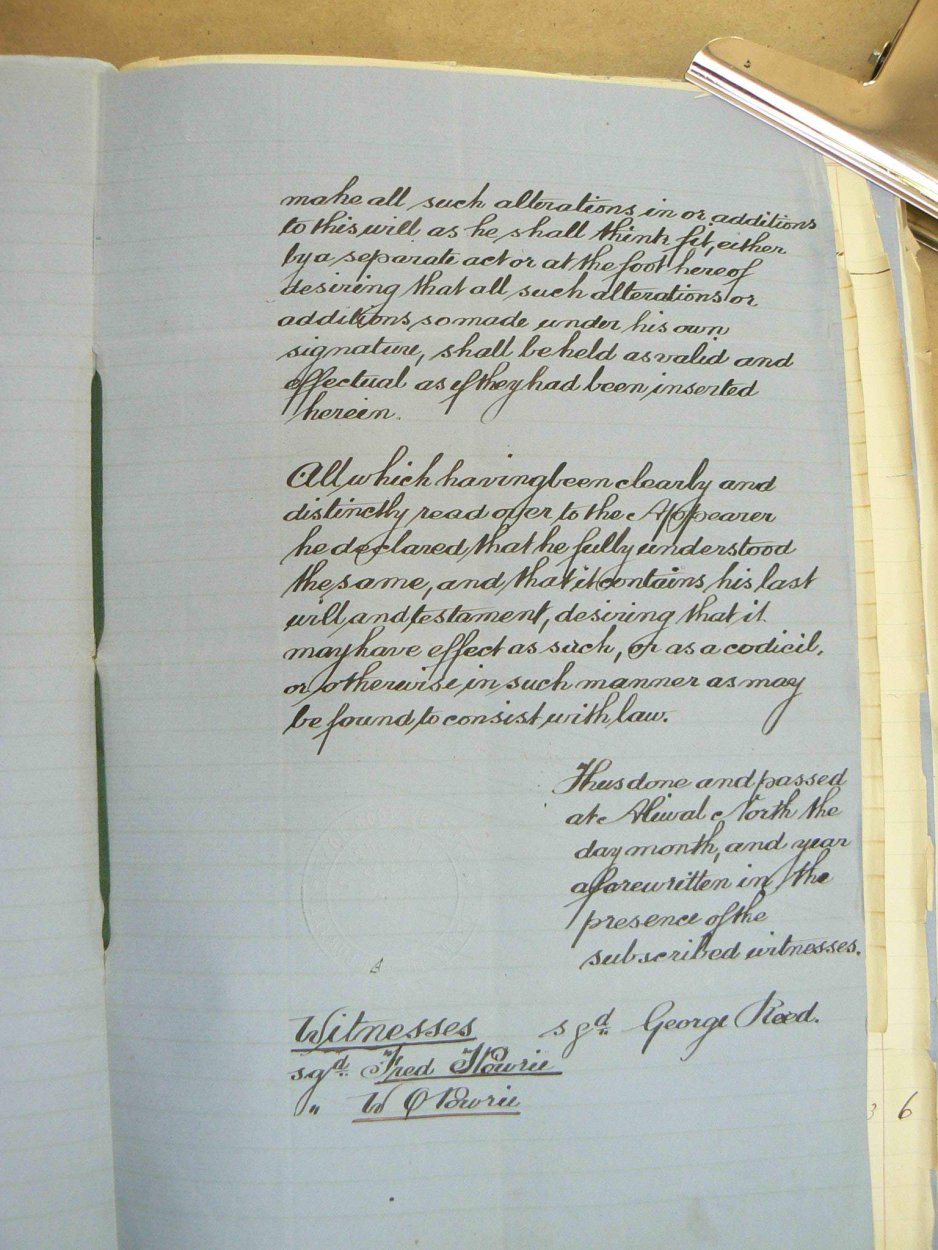 make all such alterations in or additions
to this will as he shall think fit, either
by a separate act or at the foot hereof
desiring that all such alterations or
additions so made under his own
signature, shall be held as valid and
effectual as if they had been inserted
herein.
All which having been clearly and
distinctly read over to the Appearer
he declared that he fully understood
the same, and that it contains his last
will and testament, desiring that it
may have effect as such, or as a codicil,
or otherwise in such manner as may
be found to consist with law.
Thus done and passed
at Aliwal North the
day month, and year
aforewritten in the
presence of the
subscribed witnesses.
Witnesses sgd George Reed.
sgd Fred
" W
6